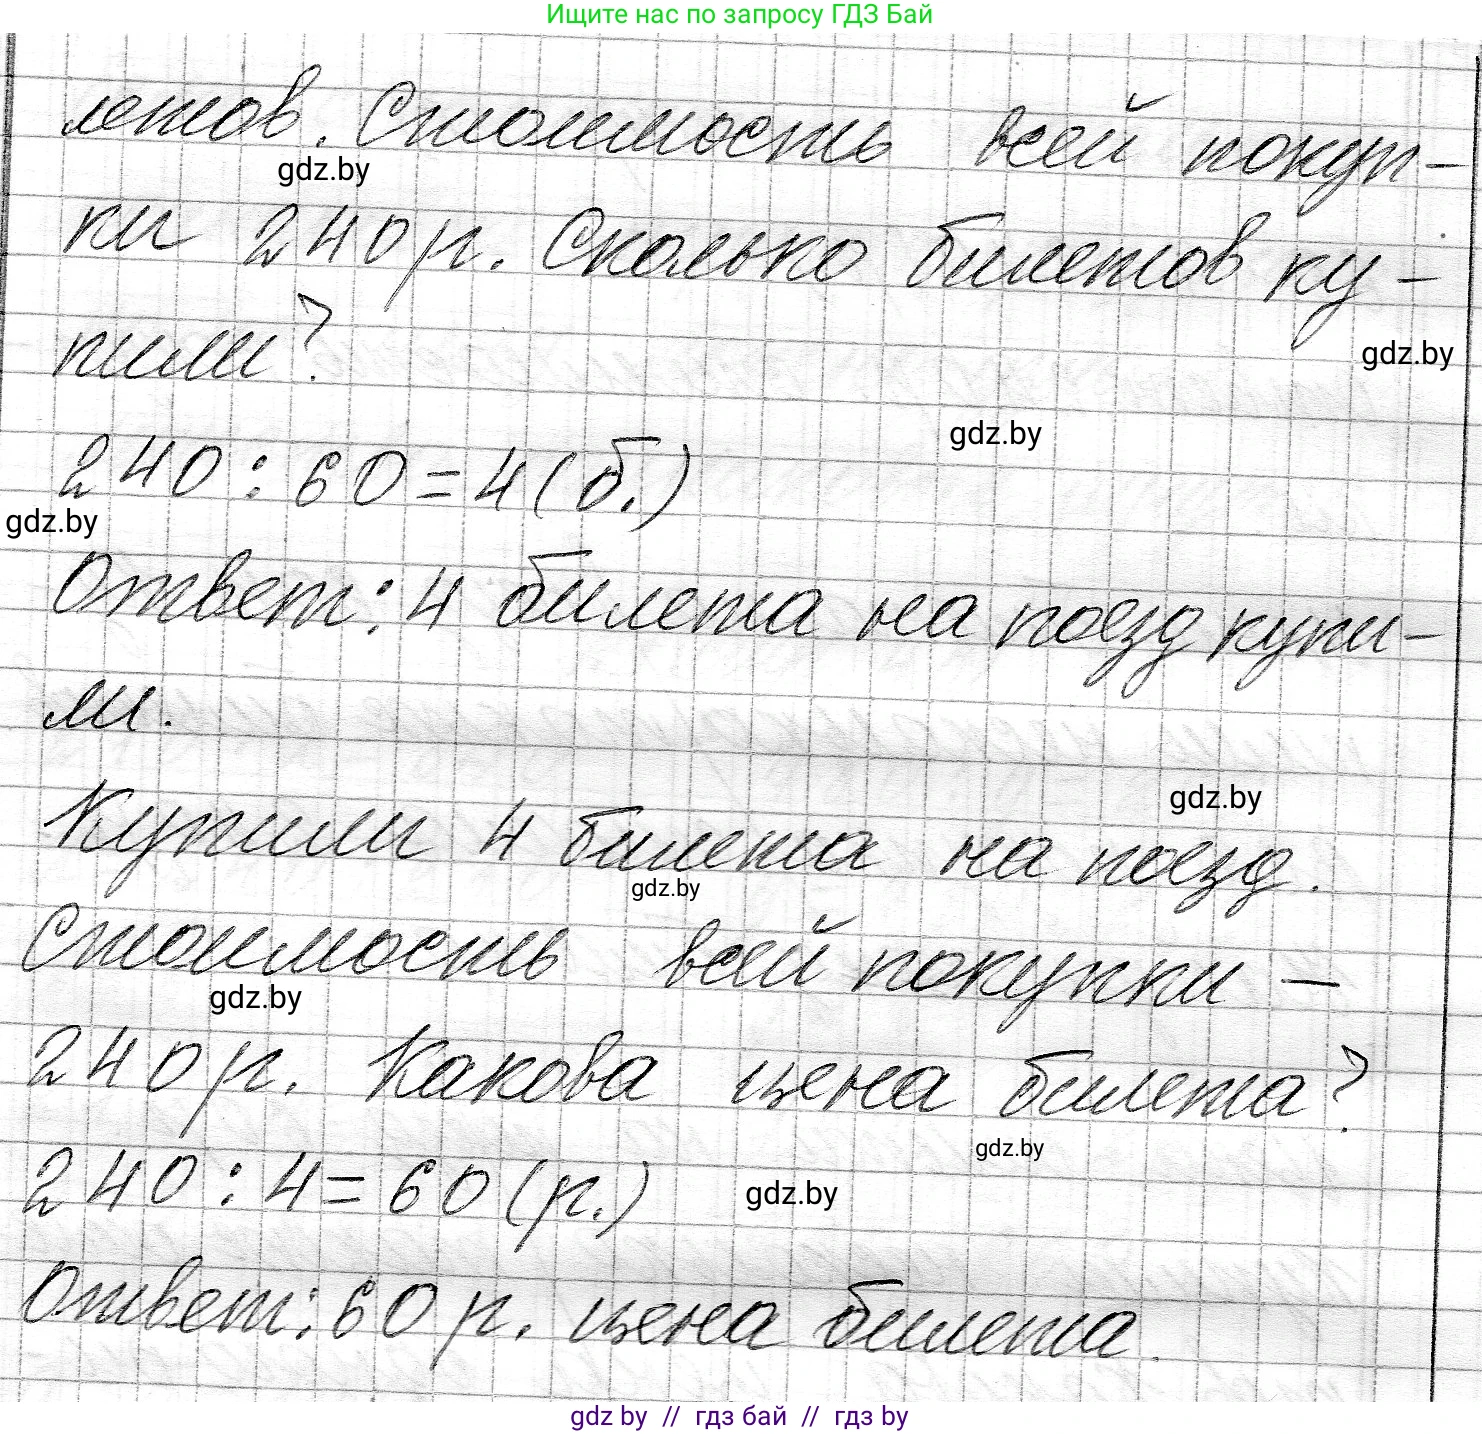 Ищите нас по запросу ГДЗ Бай
летов. Стоимость всей покуп-
gdz.by
ки 240 р. Сколько билетов ку-
пили?
gdz.by
gdz.by
240 : 60 = 4 (б.)
gdz.by
Ответ: 4 билета на поезд купи-
ли.
gdz.by
Купили 4 билета на поезд.
gdz.by
Стоимость всей покупки –
gdz.by
240 р. Какова цена билета?
gdz.by
240 : 4 = 60 (р.)
gdz.by
Ответ: 60 р. цена билета.
gdz by // гдз бай // гдз by